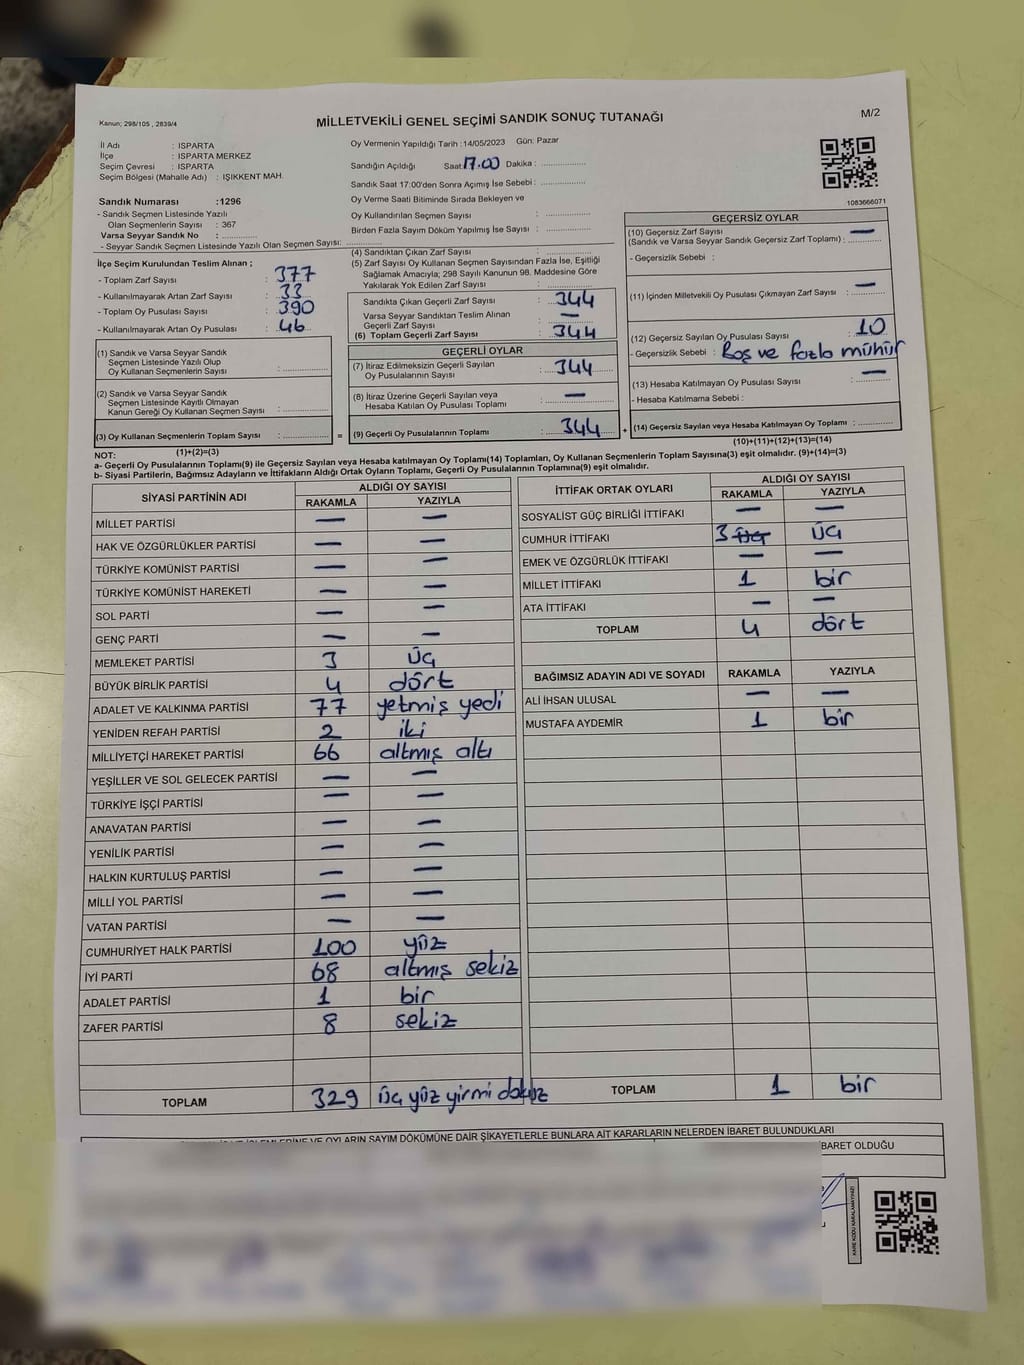 Kanun; 298/105 , 2839/4
MİLLETVEKİLİ GENEL SEÇİMİ SANDIK SONUÇ TUTANAĞI
M/2
İl Adı : ISPARTA
İlçe : ISPARTA MERKEZ
Seçim Çevresi : ISPARTA
Seçim Bölgesi (Mahalle Adı) : IŞIKKENT MAH.
Oy Vermenin Yapıldığı Tarih :14/05/2023 Gün: Pazar
Sandığın Açıldığı Saat: 17.00 Dakika : ................
Sandık Saat 17:00'den Sonra Açımış İse Sebebi : ................
Oy Verme Saati Bitiminde Sırada Bekleyen ve
Oy Kullandırılan Seçmen Sayısı : ................
Birden Fazla Sayım Döküm Yapılmış İse Sayısı : ................
1083666071
Sandık Numarası :1296
- Sandık Seçmen Listesinde Yazılı
Olan Seçmenlerin Sayısı : 367
Varsa Seyyar Sandık No : ................
- Seyyar Sandık Seçmen Listesinde Yazılı Olan Seçmen Sayısı: ................
İlçe Seçim Kurulundan Teslim Alınan ;
- Toplam Zarf Sayısı : 377
- Kullanılmayarak Artan Zarf Sayısı : 33
- Toplam Oy Pusulası Sayısı : 390
- Kullanılmayarak Artan Oy Pusulası : 46
(1) Sandık ve Varsa Seyyar Sandık
Seçmen Listesinde Yazılı Olup
Oy Kullanan Seçmenlerin Sayısı : ................
(2) Sandık ve Varsa Seyyar Sandık
Seçmen Listesinde Kayıtlı Olmayan
Kanun Gereği Oy Kullanan Seçmen Sayısı : ................
(3) Oy Kullanan Seçmenlerin Toplam Sayısı : ................ =
(1)+(2)=(3)
(4) Sandıktan Çıkan Zarf Sayısı : ................
(5) Zarf Sayısı Oy Kullanan Seçmen Sayısından Fazla İse, Eşitliği
Sağlamak Amacıyla; 298 Sayılı Kanunun 98. Maddesine Göre
Yakılarak Yok Edilen Zarf Sayısı : ................
Sandıkta Çıkan Geçerli Zarf Sayısı : 344
Varsa Seyyar Sandıktan Teslim Alınan
Geçerli Zarf Sayısı : —
(6) Toplam Geçerli Zarf Sayısı : 344
GEÇERLİ OYLAR
(7) İtiraz Edilmeksizin Geçerli Sayılan
Oy Pusulalarının Sayısı : 344
(8) İtiraz Üzerine Geçerli Sayılan veya
Hesaba Katılan Oy Pusulası Toplamı : —
(9) Geçerli Oy Pusulalarının Toplamı : 344 +
GEÇERSİZ OYLAR
(10) Geçersiz Zarf Sayısı —
(Sandık ve Varsa Seyyar Sandık Geçersiz Zarf Toplamı) : ................
- Geçersizlik Sebebi :
(11) İçinden Milletvekili Oy Pusulası Çıkmayan Zarf Sayısı : —
(12) Geçersiz Sayılan Oy Pusulası Sayısı : 10
- Geçersizlik Sebebi : Boş ve fazla mühür
(13) Hesaba Katılmayan Oy Pusulası Sayısı : —
- Hesaba Katılmama Sebebi :
(14) Geçersiz Sayılan veya Hesaba Katılmayan Oy Toplamı : ................
(10)+(11)+(12)+(13)=(14)
NOT:
a- Geçerli Oy Pusulalarının Toplamı(9) ile Geçersiz Sayılan veya Hesaba katılmayan Oy Toplamı(14) Toplamları, Oy Kullanan Seçmenlerin Toplam Sayısına(3) eşit olmalıdır. (9)+(14)=(3)
b- Siyasi Partilerin, Bağımsız Adayların ve İttifakların Aldığı Ortak Oyların Toplamı, Geçerli Oy Pusulalarının Toplamına(9) eşit olmalıdır.
SİYASİ PARTİNİN ADI
ALDIĞI OY SAYISI
RAKAMLA YAZIYLA
MİLLET PARTİSİ — —
HAK VE ÖZGÜRLÜKLER PARTİSİ — —
TÜRKİYE KOMÜNİST PARTİSİ — —
TÜRKİYE KOMÜNİST HAREKETİ — —
SOL PARTİ — —
GENÇ PARTİ — —
MEMLEKET PARTİSİ 3 üç
BÜYÜK BİRLİK PARTİSİ 4 dört
ADALET VE KALKINMA PARTİSİ 77 yetmiş yedi
YENİDEN REFAH PARTİSİ 2 iki
MİLLİYETÇİ HAREKET PARTİSİ 66 altmış altı
YEŞİLLER VE SOL GELECEK PARTİSİ — —
TÜRKİYE İŞÇİ PARTİSİ — —
ANAVATAN PARTİSİ — —
YENİLİK PARTİSİ — —
HALKIN KURTULUŞ PARTİSİ — —
MİLLİ YOL PARTİSİ — —
VATAN PARTİSİ — —
CUMHURİYET HALK PARTİSİ 100 yüz
İYİ PARTİ 68 altmış sekiz
ADALET PARTİSİ 1 bir
ZAFER PARTİSİ 8 sekiz
TOPLAM 329 üç yüz yirmi dokuz
İTTİFAK ORTAK OYLARI
ALDIĞI OY SAYISI
RAKAMLA YAZIYLA
SOSYALİST GÜÇ BİRLİĞİ İTTİFAKI — —
CUMHUR İTTİFAKI 3 üç
EMEK VE ÖZGÜRLÜK İTTİFAKI — —
MİLLET İTTİFAKI 1 bir
ATA İTTİFAKI — —
TOPLAM 4 dört
BAĞIMSIZ ADAYIN ADI VE SOYADI RAKAMLA YAZIYLA
ALİ İHSAN ULUSAL — —
MUSTAFA AYDEMİR 1 bir
TOPLAM 1 bir
VE OYLARIN SAYIM DÖKÜMÜNE DAİR ŞİKAYETLERLE BUNLARA AİT KARARLARIN NELERDEN İBARET BULUNDUKLARI
İBARET OLDUĞU
KARE KODU KARALAMAYINIZ!